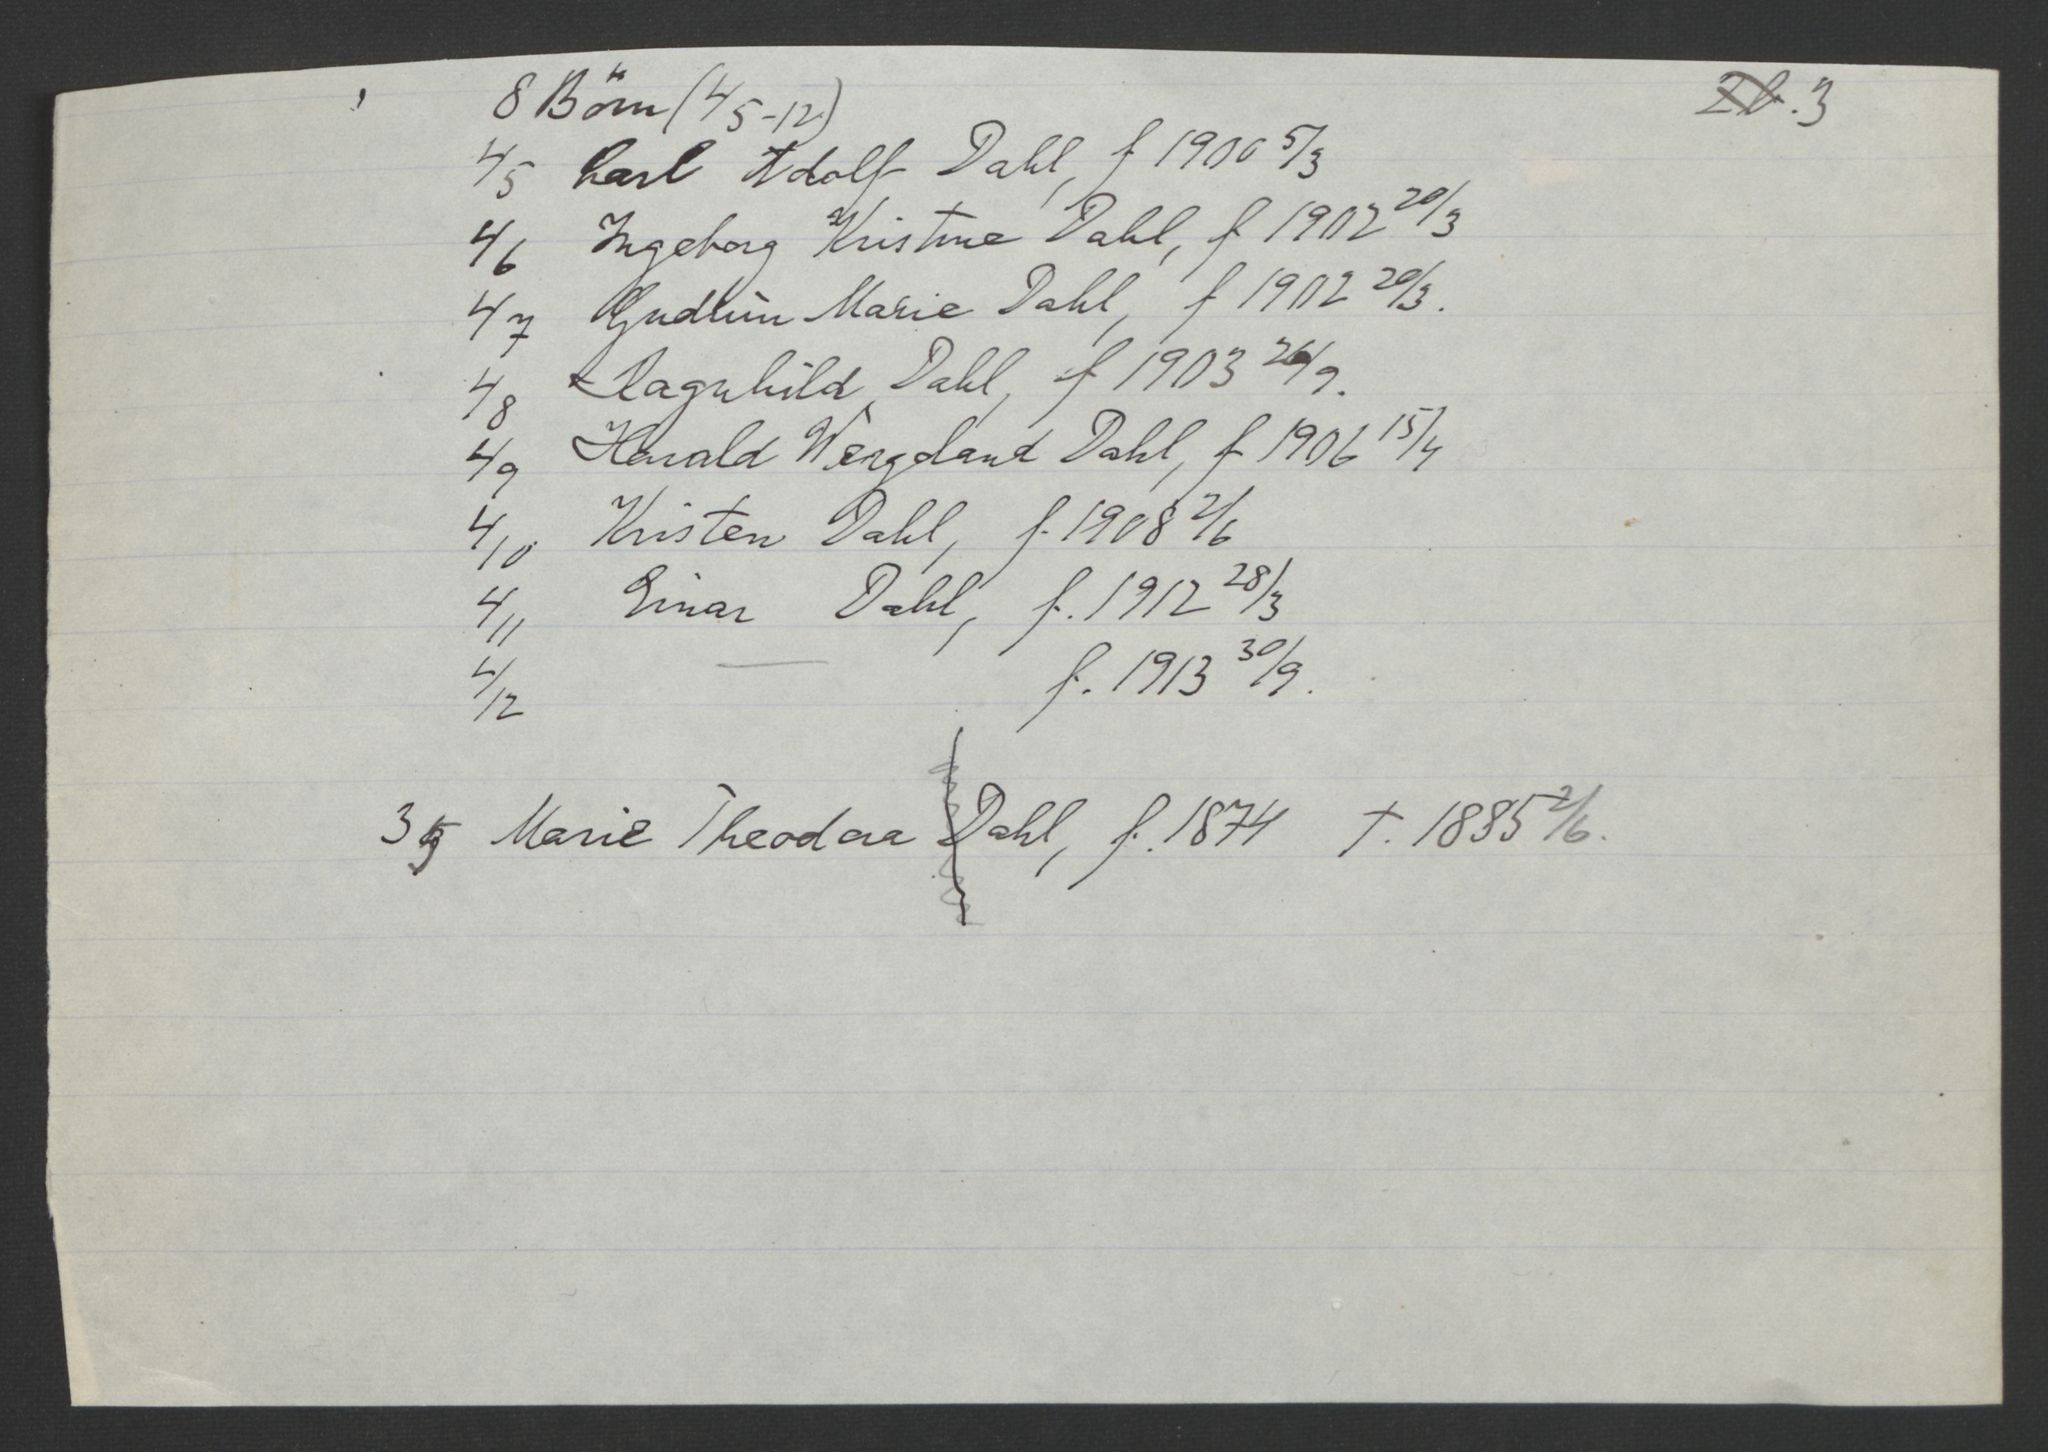 8 Börn (4/5-12)
3
4/5 Carl Adolf Dahl, f 1900 5/3
4/6 Ingeborg Kristine Dahl, f 1902 20/3
4/7 Gudrun Marie Dahl, f 1902 20/3.
4/8 Ragnhild Dahl, f 1903 26/9.
4/9 Harald Wergeland Dahl, f 1906 15/4
4/10 Kristen Dahl, f. 1908 2/6
4/11 Einar Dahl, f. 1912 28/3
4/12 — f. 1913 30/9.
3 Marie Theodora Dahl, f. 1874 †. 1885 2/6.